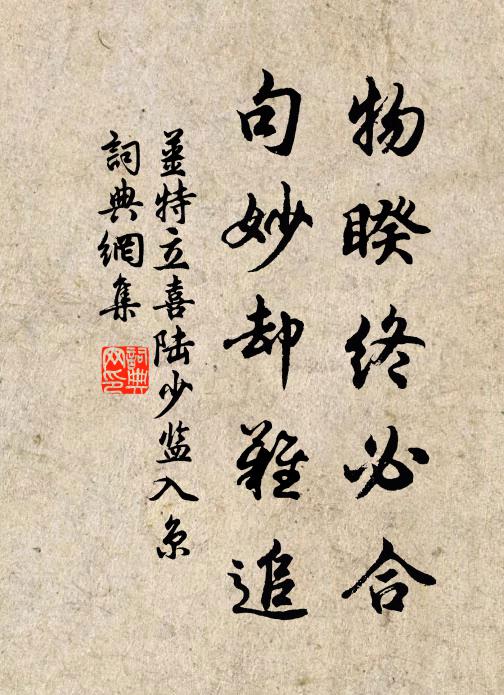 物睽終必合
句妙却難追
姜特立喜陆少监入京
詞典網集
詞典網印